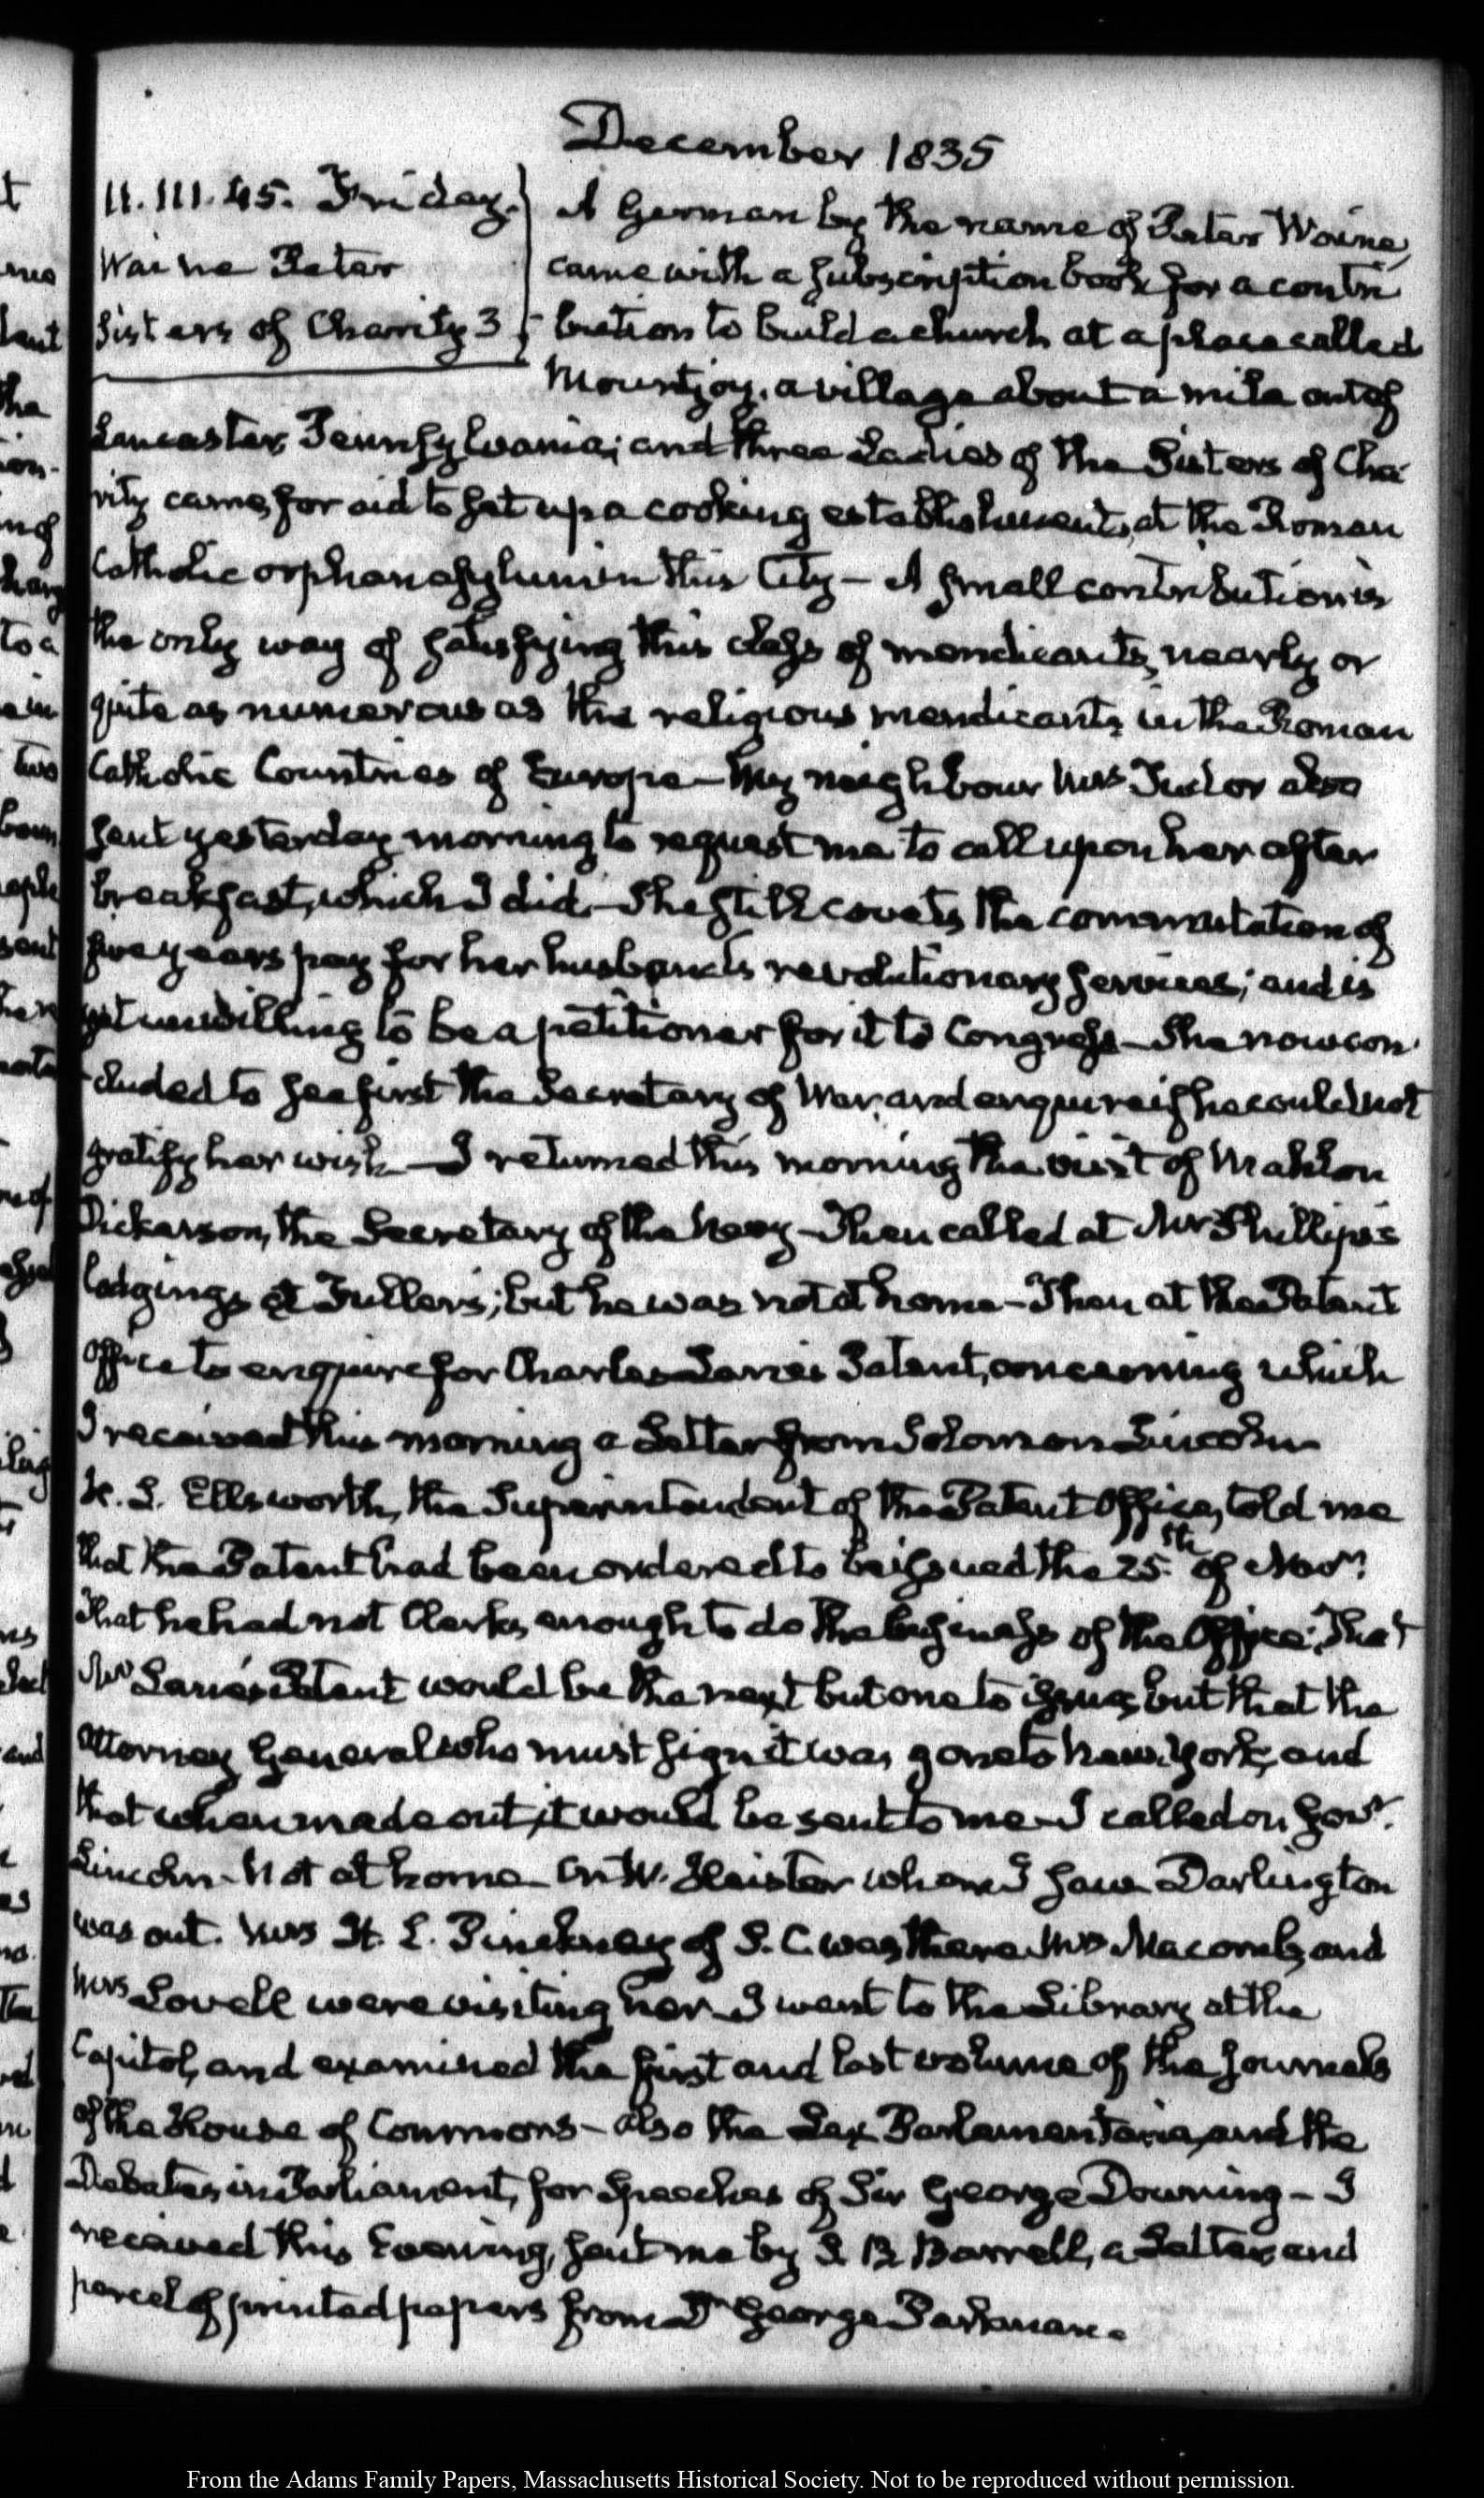 December 1835
11. III. 45. Friday.
Waine Peter
Sisters of Charity 3
A German by the name of Peter Waine,
came with a subscription book for a contri
bution to build a church at a place called
Mountjoy, a village about a mile out of
Lancaster, Pennsylvania; and three Ladies of the Sisters of Cha
rity came, for aid to set up a cooking establishment, at the Roman
Catholic orphan asylum in this City – A small contribution is
the only way of satisfying this class of mendicants, nearly or
quite as numerous as the religious mendicants in the Roman
Catholic Countries of Europe – My neighbour Mrs Tudor also
sent yesterday morning to request me to call upon her after
breakfast, which I did. – She still covets the commutation of
five years pay for her husband's revolutionary services; and is
yet unwilling to be a petitioner for it to Congress – She now con
cluded to see first the Secretary of War, and enquire if he could not
gratify her wish – I returned this morning the visit of Mahlon
Dickerson, the Secretary of the Navy – Then called at Mr Phillips's
lodgings at Fuller's; but he was not at home – Then at the Patent
Office to enquire for Charles Lane's Patent, concerning which
I received this morning a Letter from Solomon Lincoln
H. L. Ellsworth, the Superintendent of the Patent Office, told me
that the Patent had been ordered to be issued the 25th of Novr.
That he had not Clerks enough to do the business of the Office: That
Mr Lane's Patent would be the next but one to issue, but that the
Attorney General who must sign it was gone to New York, and
that when made out, it would be sent to me – I called on Govr.
Lincoln – Not at home – On W. Heister whom I saw. Darlington
was out. Mrs H. L. Pinckney of S. C. was there. Mrs Macomb, and
Mrs Lovell were visiting her – I went to the Library at the
Capitol, and examined the first and last volume of the Journals
of the House of Commons – also the Lex Parlamentaria, and the
Debates in Parliament, for Speeches of Sir George Downing – I
received this Evening, sent me by S. B. Barrell, a Letter and
parcel of printed papers from Dr George Parkman.
From the Adams Family Papers, Massachusetts Historical Society. Not to be reproduced without permission.